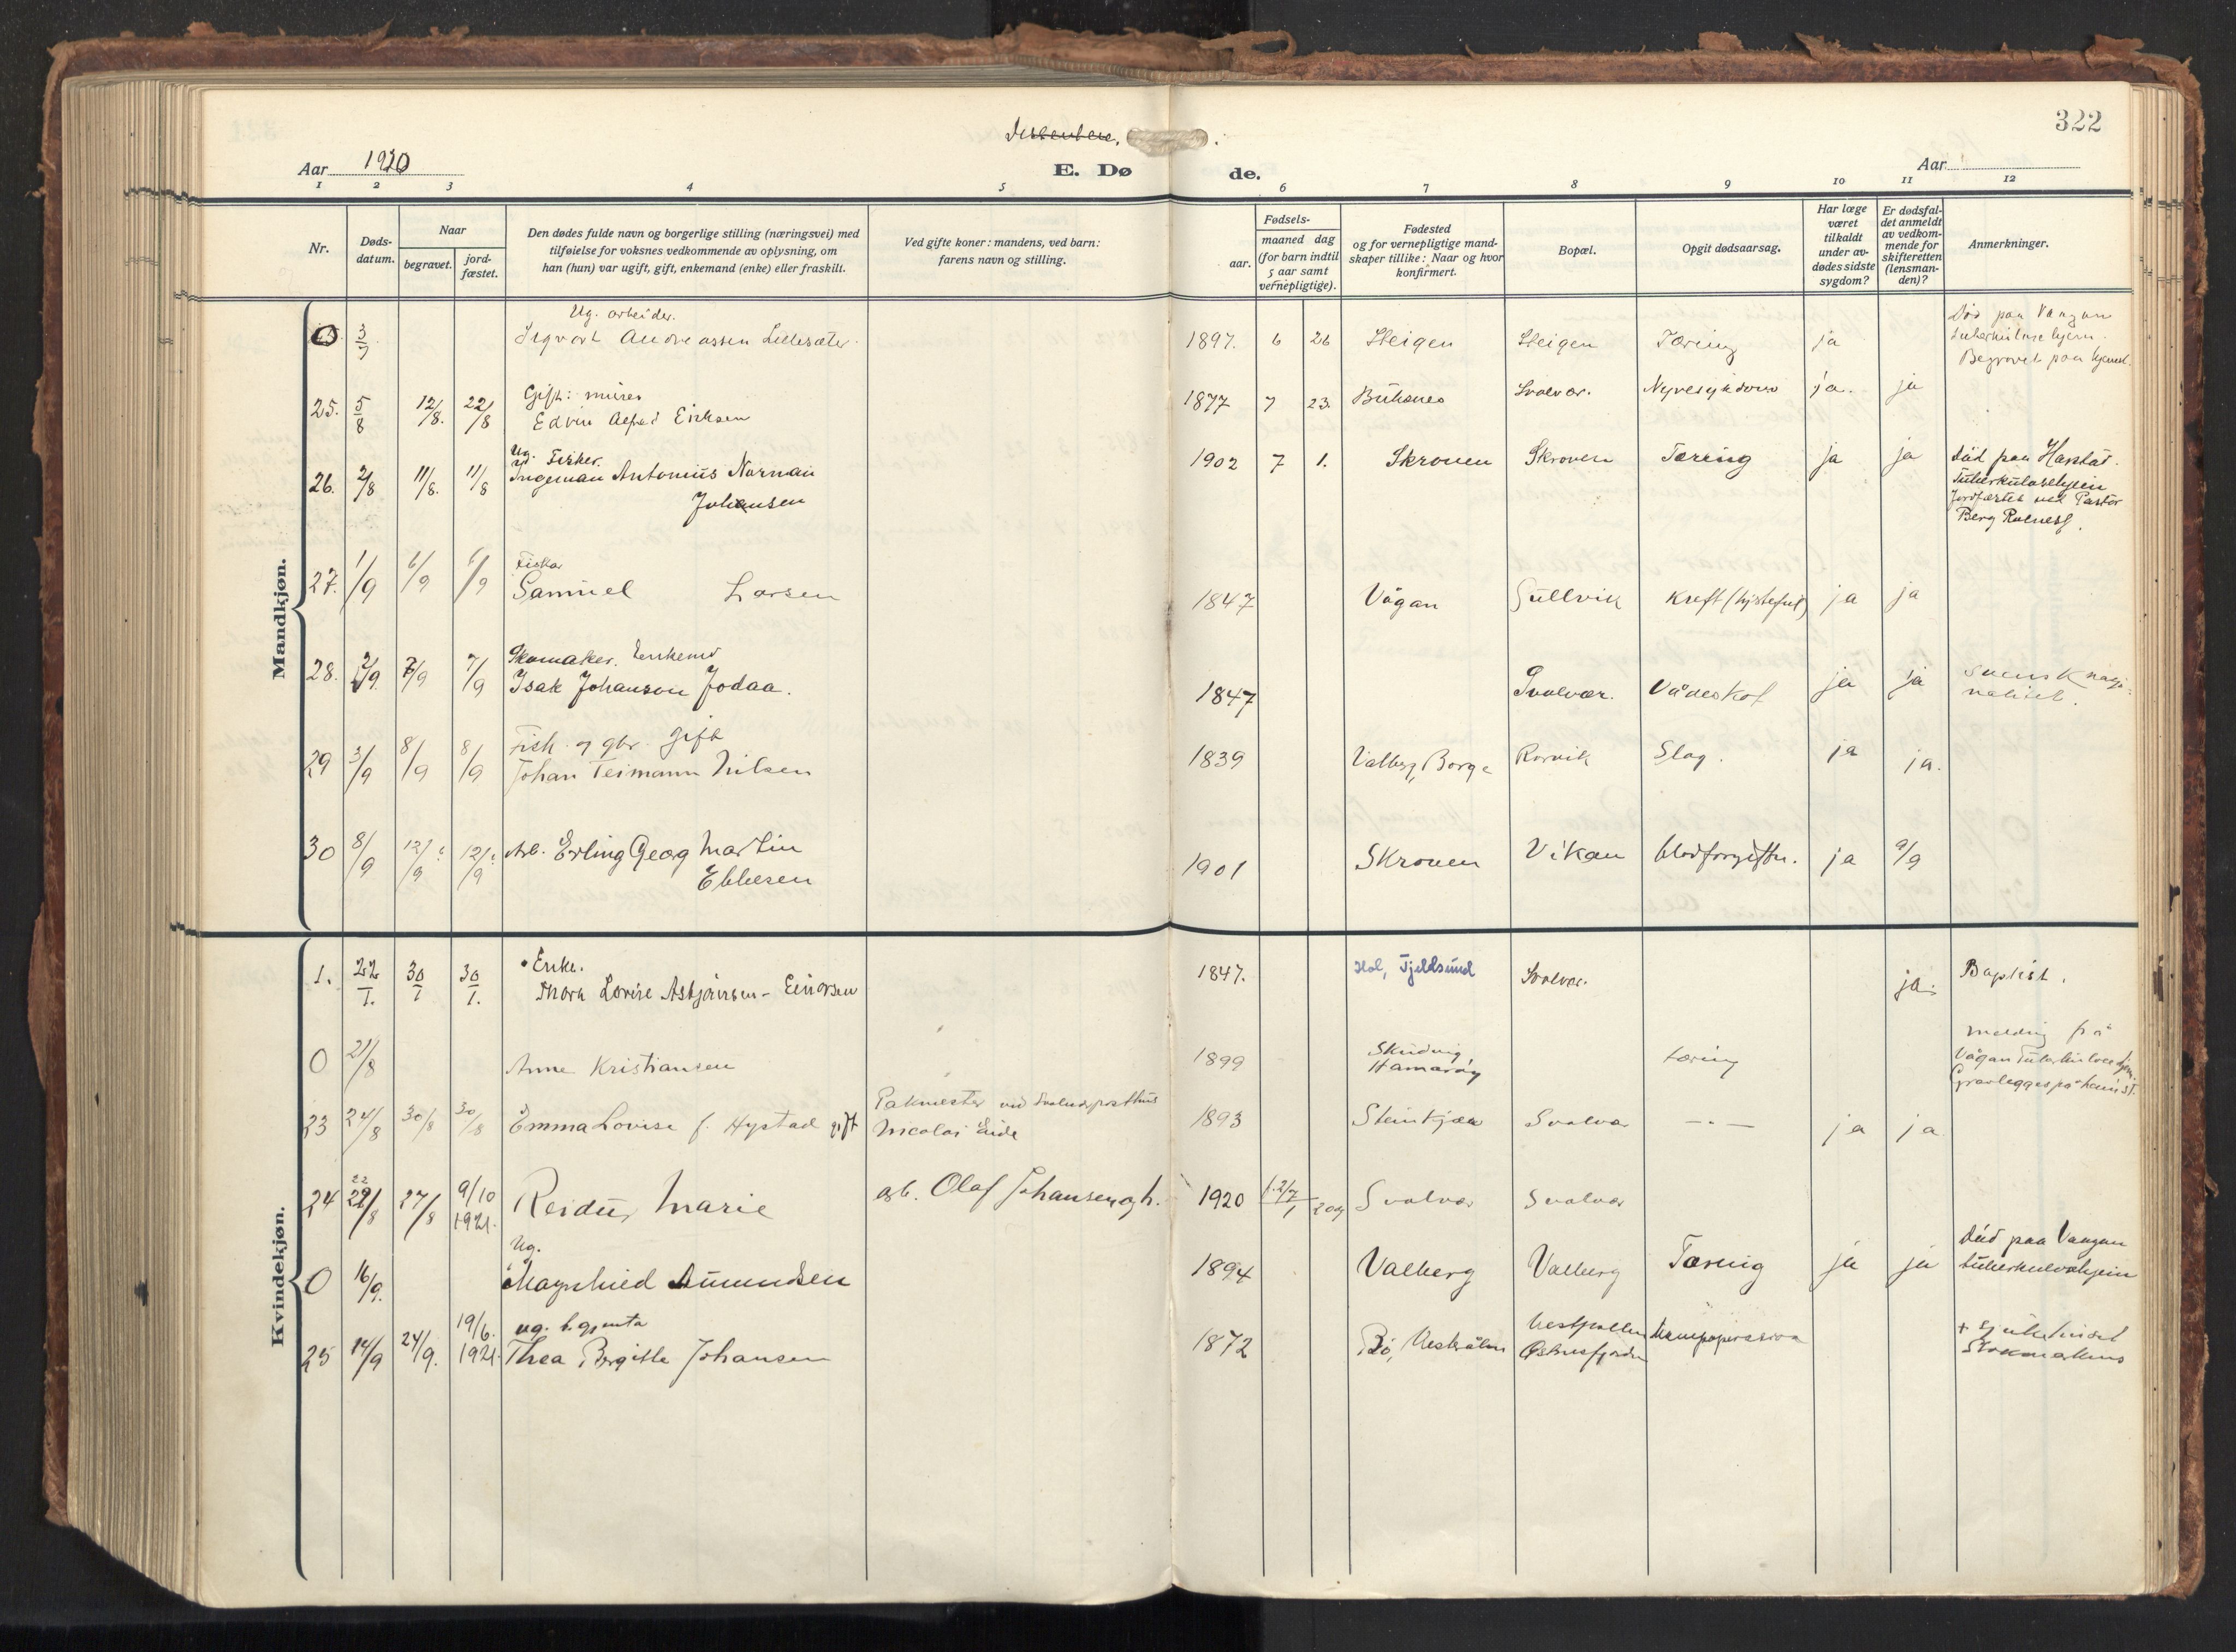 322
Aar 1920
E. Døde.
Aar
1 2 3 4 5 6 7 8 9 10 11 12
Nr.
Døds-
datum.
Naar
begravet.
jord-
fæstet.
Den dødes fulde navn og borgerlige stilling (næringsvei) med
tilføielse for voksnes vedkommende av oplysning, om
han (hun) var ugift, gift, enkemand (enke) eller fraskilt.
Ved gifte koner: mandens, ved barn:
farens navn og stilling.
Fødsels-
aar.
maaned dag
(for barn indtil
5 aar samt
vernepligtige).
Fødested
og for vernepligtige mand-
skaper tillike: Naar og hvor
konfirmert.
Bopæl.
Opgit dødsaarsag.
Har læge
været
tilkaldt
under av-
dødes sidste
sygdom?
Er dødsfal-
det anmeldt
av vedkom-
mende for
skifteretten
(lensman-
den)?
Anmerkninger.
Mandkjøn.
Ug. arbeider.
3/7 Sigvart Andreassen 1897. 6 26 Steigen Steigen Tæring ja
Død paa Vaagan
Tuberkulosehjem.
Begravet paa hjemst.
Gift: murer
25. 5/8 12/8. 22/8 Edvin Alfred Eriksen 1877 7 23. Buksnes Svolvær. Nyresykdom ja. ja
Ug. Fisker.
26. 2/8 11/8. 11/8 Ingeman Antonius Norman
Johansen
1902 7 1. Skroven Skroven Tæring ja ja
død paa Harstad.
Tuberkulosehjem
Jordfæstet ved Pastor
Berg Rolness.
Fisker
27. 1/9 6/9 6/9 Samuel Larsen 1847 Vågan Gullvik Kreft ja ja
Skomaker. Enkemd
28. 2/9. 7/9 7/9 Isak Johanson Jodaa. 1847 Svolvær. Vådeskot ja ja
svensk nasjo-
nalitet.
Fisk. og gbr. gift
29 3/9 8/9 8/9 Johan Teimann Nilsen 1839 Valberg, Borge Rørvik Slag. ja ja.
30 8/9 12/9 12/9 Arb. Erling Georg Martin
Ebbesen
1901 Skroven Vikan blodforgiftn. ja 9/9
Kvindekjøn.
Enke.
1. 22/1. 30/1 30/1. Thora Lovise Asbjørnsen - Einarsen 1847. Hol, Tjeldsund Svolvær. ja. Baptist.
0 21/8 Anne Kristiansen 1899 Skudvig,
Hamarøy
tæring
melding frå
Vågan Tuberkulosehjem.
Gravlegges på heimst.
23 24/8 30/8 30/8 Emma Lovise f. Hystad gift
Pakmester ved Svolvær posthus
Nicolai Eide
1893 Steinkjær Svolvær - " - ja ja
24 22/8 27/8 9/10
1921. Reidun Marie arb. Olaf Johansen og h. 1920 Svolvær Svolvær
Ug.
0 16/9. Magnhild Amundsen 1894 Valberg Valberg Tæring ja ja
død paa Vaagan
tuberkulosehjem
ug. b. gjenta
25 14/9 24/9. 19/6.
1921. Thea Birgitte Johansen 1872 Bø, Vesterålen
Vestpollen
Østnesfjorden
+ Sjukehuset
Stokmarknes